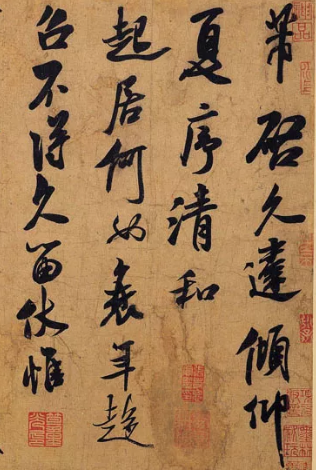 芾啓久違傾仰
夏序清和
起居何如衰年趨
召不得久留伏惟